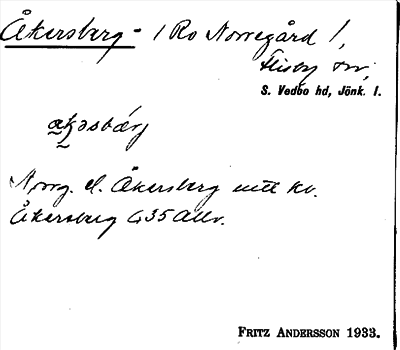 Åkersberg - 1 Ro Norregård 1,
Flisby sn,
S. Vedbo hd, Jönk. l.
Norrg. el. Åkersberg mtl kv.
Åkersberg G35 Allv.
FRITZ ANDERSSON 1933.